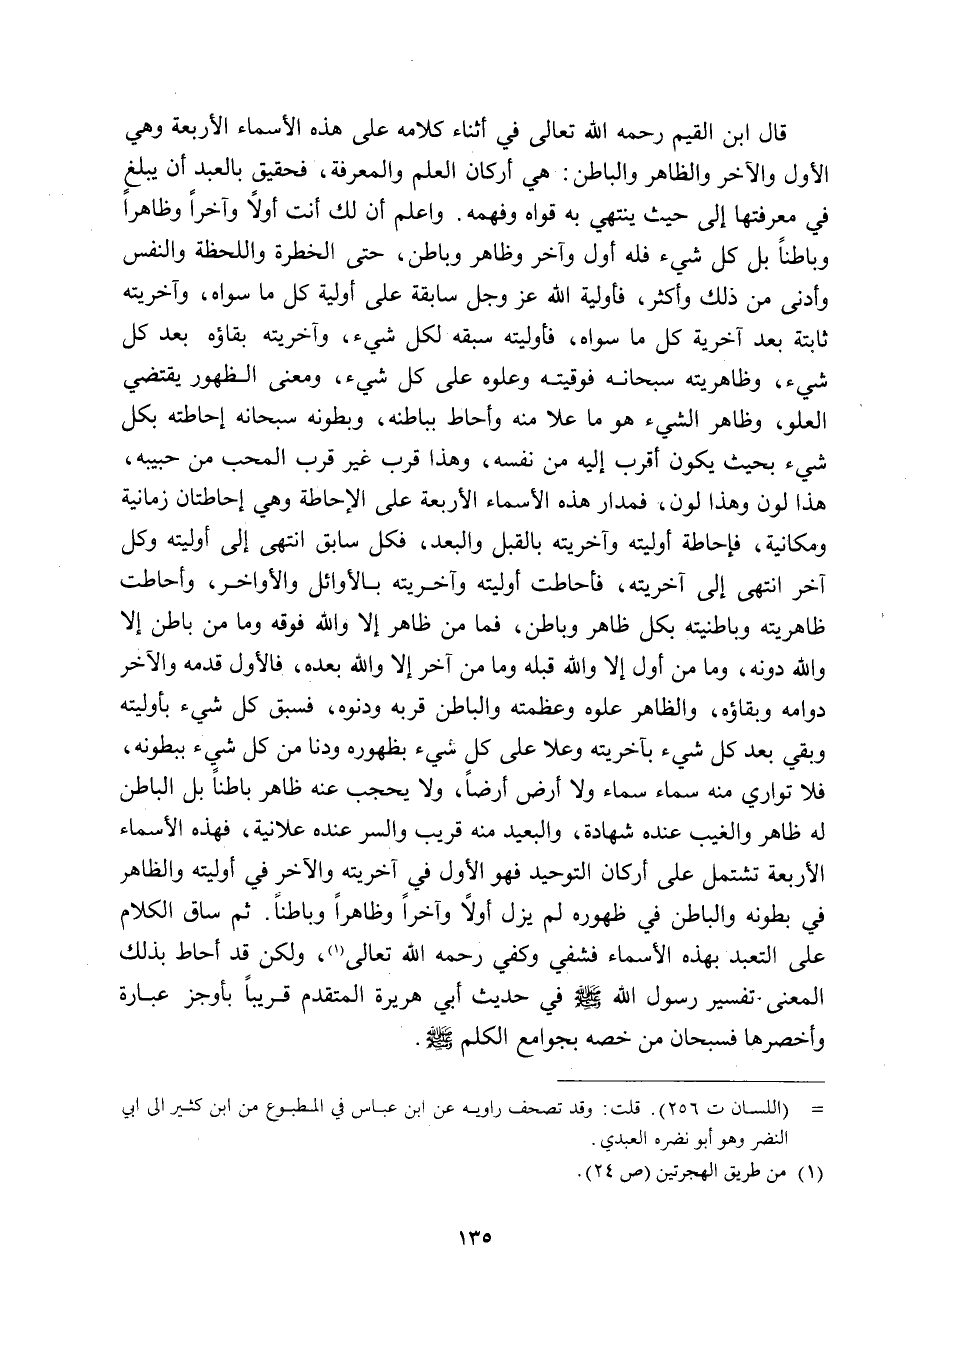 قال ابن القيم رحمه الله تعالى في أثناء كلامه على هذه الأسماء الأربعة وهي
الأول والآخر والظاهر والباطن: هي أركان العلم والمعرفة، فحقيق بالعبد أن يبلغ
في معرفتها إلى حيث ينتهي به قواه وفهمه. واعلم أن لك أنت أولاً وآخراً وظاهراً
وباطناً بل كل شيء فله أول وآخر وظاهر وباطن، حتى الخطرة واللحظة والنفس
وأدنى من ذلك وأكثر، فأولية الله عز وجل سابقة على أولية كل ما سواه، وآخريته
ثابتة بعد آخرية كل ما سواه، فأوليته سبقه لكل شيء، وآخريته بقاؤه بعد كل
شيء، وظاهريته سبحانه فوقيته وعلوه على كل شيء، ومعنى الظهور يقتضي
العلو، وظاهر الشيء هو ما علا منه وأحاط بباطنه، وبطونه سبحانه إحاطته بكل
شيء بحيث يكون أقرب إليه من نفسه، وهذا قرب غير قرب المحب من حبيبه،
هذا لون وهذا لون، فمدار هذه الأسماء الأربعة على الإحاطة وهي إحاطتان زمانية
ومكانية، فإحاطة أوليته وآخريته بالقبل والبعد، فكل سابق انتهى إلى أوليته وكل
آخر انتهى إلى آخريته، فأحاطت أوليته وآخريته بالأوائل والأواخر، وأحاطت
ظاهريته وباطنيته بكل ظاهر وباطن، فما من ظاهر إلا والله فوقه وما من باطن إلا
والله دونه، وما من أول إلا والله قبله وما من آخر إلا والله بعده، فالأول قدمه والآخر
دوامه وبقاؤه، والظاهر علوه وعظمته والباطن قربه ودنوه، فسبق كل شيء بأوليته
وبقي بعد كل شيء بآخريته وعلا على كل شيء بظهوره ودنا من كل شيء ببطونه،
فلا تواري منه سماء سماء ولا أرض أرضاً، ولا يحجب عنه ظاهر باطناً بل الباطن
له ظاهر والغيب عنده شهادة، والبعيد منه قريب والسر عنده علانية، فهذه الأسماء
الأربعة تشتمل على أركان التوحيد فهو الأول في آخريته والآخر في أوليته والظاهر
في بطونه والباطن في ظهوره لم يزل أولاً وآخراً وظاهراً وباطناً. ثم ساق الكلام
على التعبد بهذه الأسماء فشفي وكفي رحمه الله تعالى(١)، ولكن قد أحاط بذلك
المعنى تفسير رسول الله ﷺ في حديث أبي هريرة المتقدم قريباً بأوجز عبارة
وأخصرها فسبحان من خصه بجوامع الكلم ﷺ.
= (اللسان ت ٢٥٦). قلت: وقد تصحف راويه عن ابن عباس في المطبوع من ابن كثير الى ابي
النضر وهو أبو نضره العبدي.
(١) من طريق الهجرتين (ص ٢٤).
١٣٥